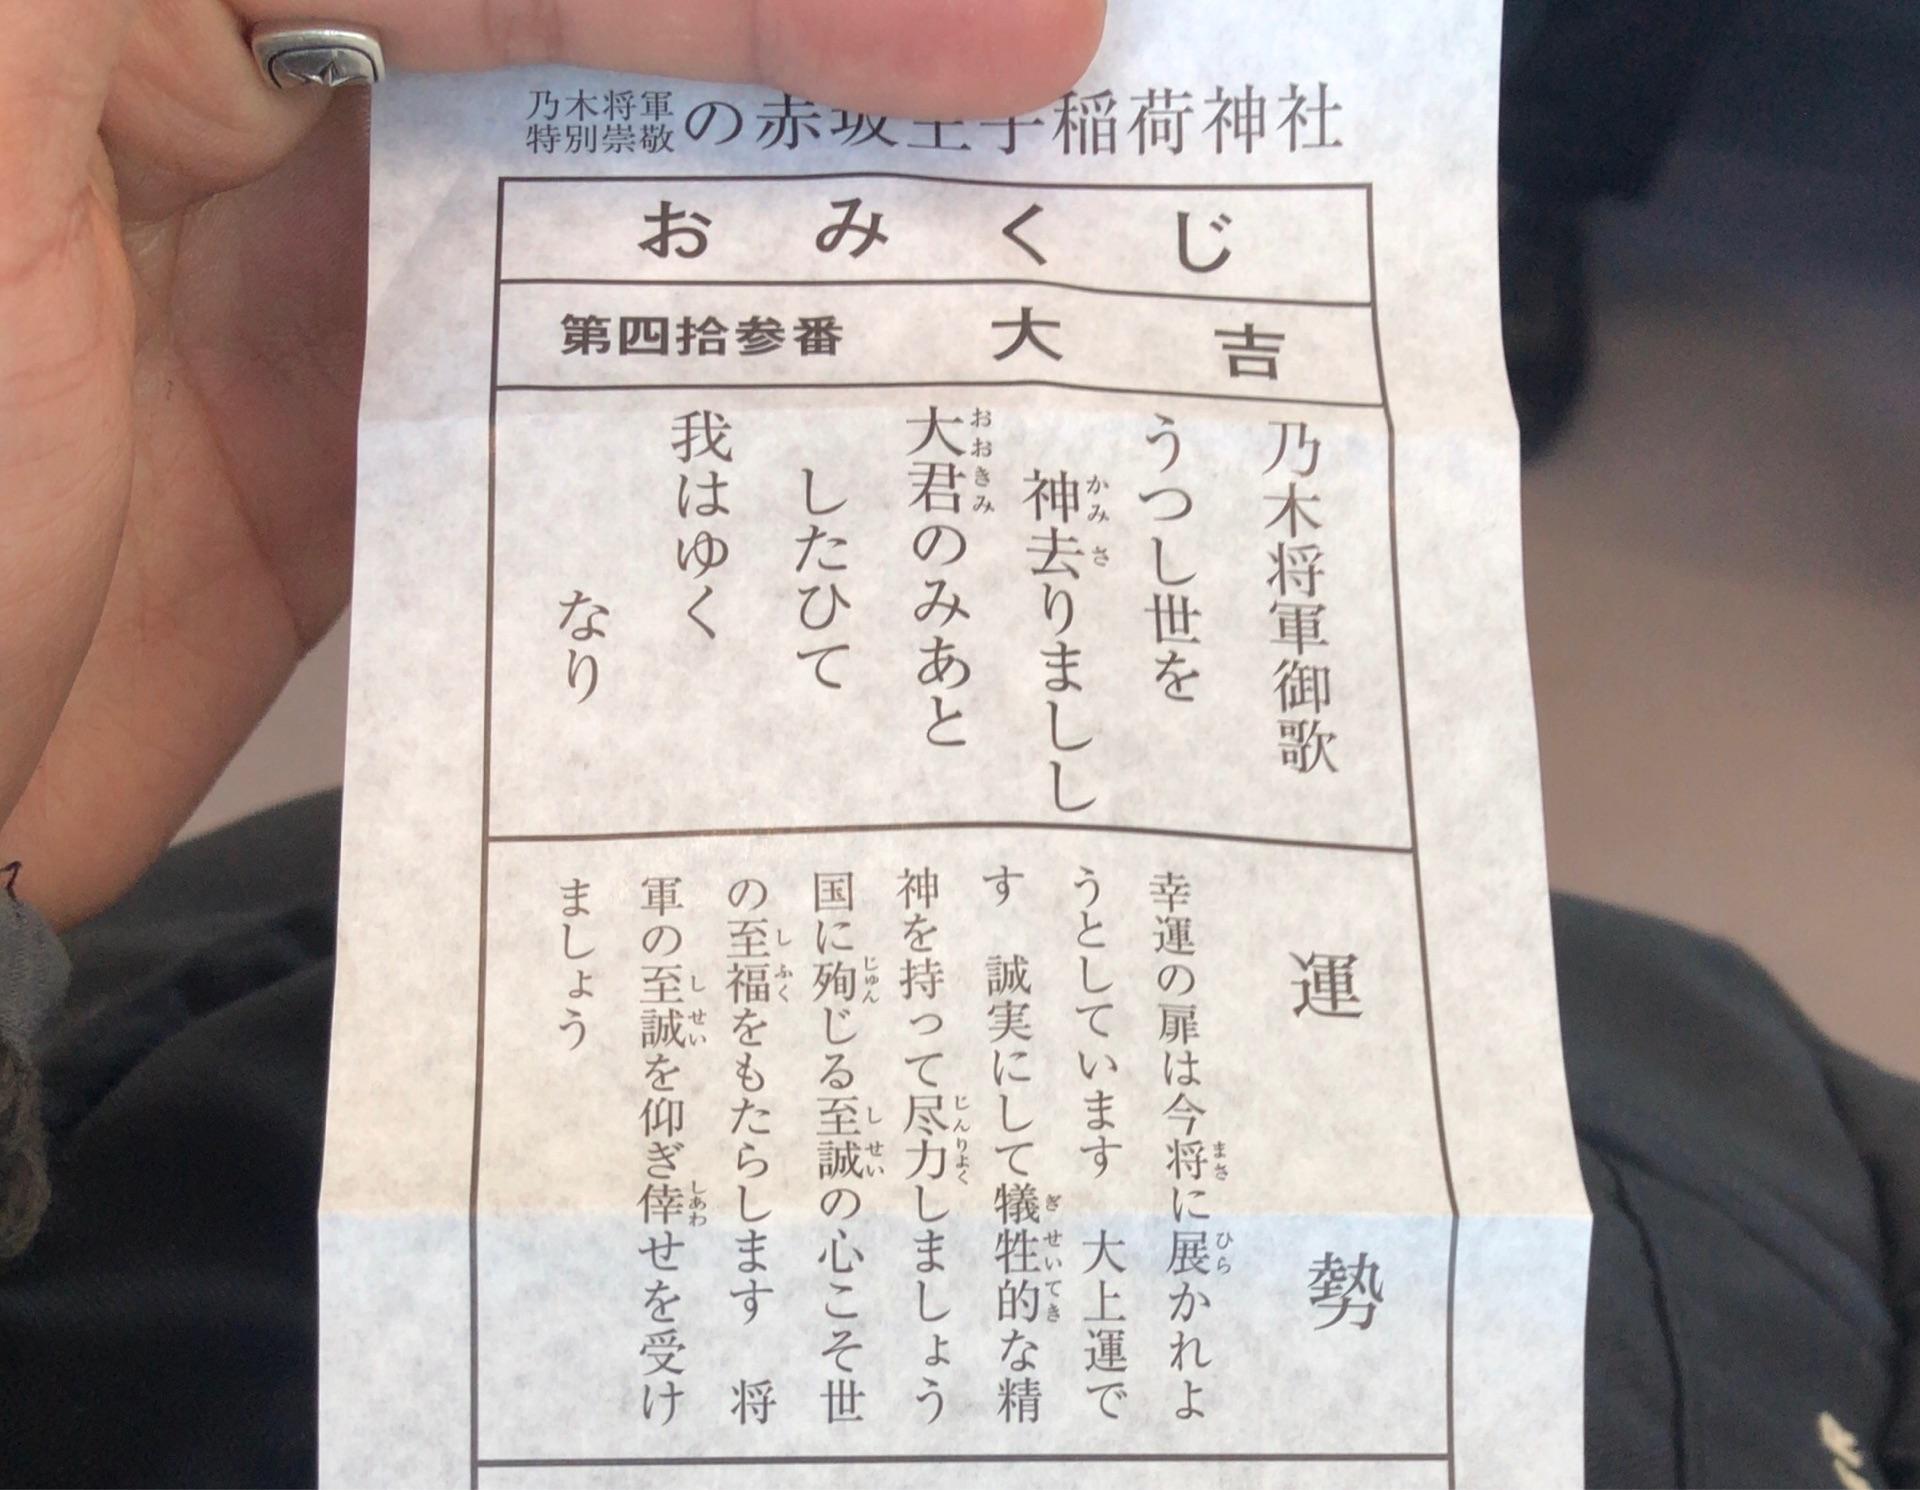 乃木将軍
特別崇敬
の赤坂王子稲荷神社
おみくじ
第四拾参番 大吉
乃木将軍御歌
うつし世を
神去りましし
大君のみあと
したひて
我はゆく
なり
運勢
幸運の扉は今将に展かれよ
うとしています 大上運で
す 誠実にして犠牲的な精
神を持って尽力しましょう
国に殉じる至誠の心こそ世
の至福をもたらします 将
軍の至誠を仰ぎ倖せを受け
ましょう